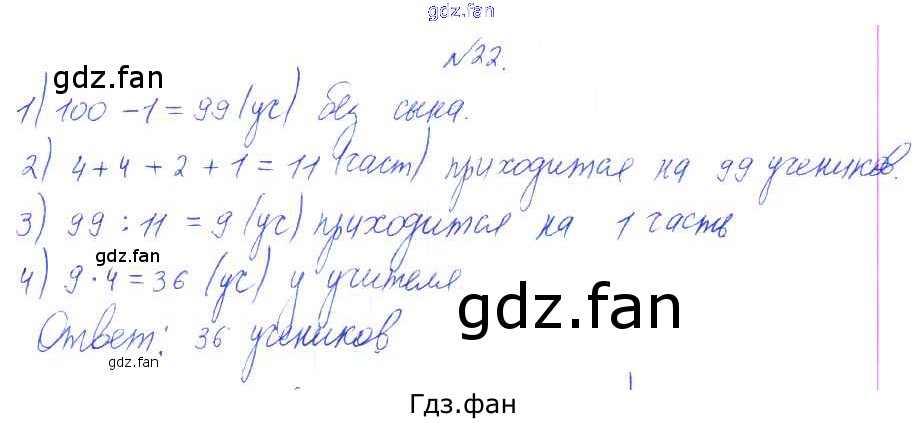 gdz.fan
№22.
gdz.fan
1) 100 - 1 = 99 (уч) без сына.
2) 4 + 4 + 2 + 1 = 11 (част) приходится на 99 учеников.
3) 99 : 11 = 9 (уч) приходится на 1 часть
gdz.fan
4) 9 · 4 = 36 (уч) у учителя.
gdz.fan
Ответ: 36 учеников
gdz.fan
Гдз.фан